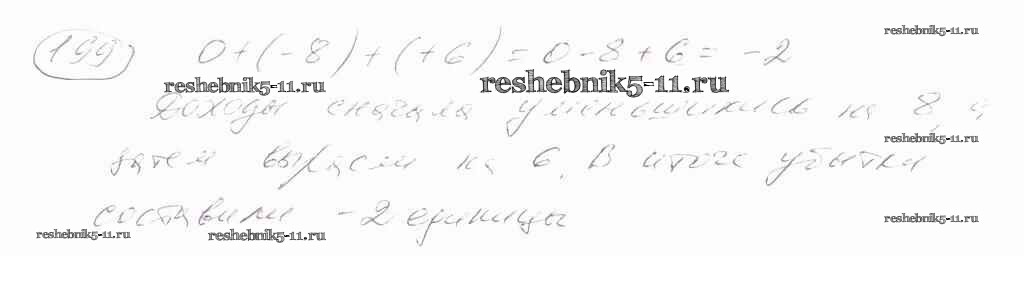 reshebnik5-11.ru
199 0+(-8)+(+6)=0-8+6=-2
reshebnik5-11.ru reshebnik5-11.ru
Доходы сначала уменьшились на 8, а
reshebnik5-11.ru
затем выросли на 6. В итоге убытки
составили -2 единицы
reshebnik5-11.ru
reshebnik5-11.ru reshebnik5-11.ru